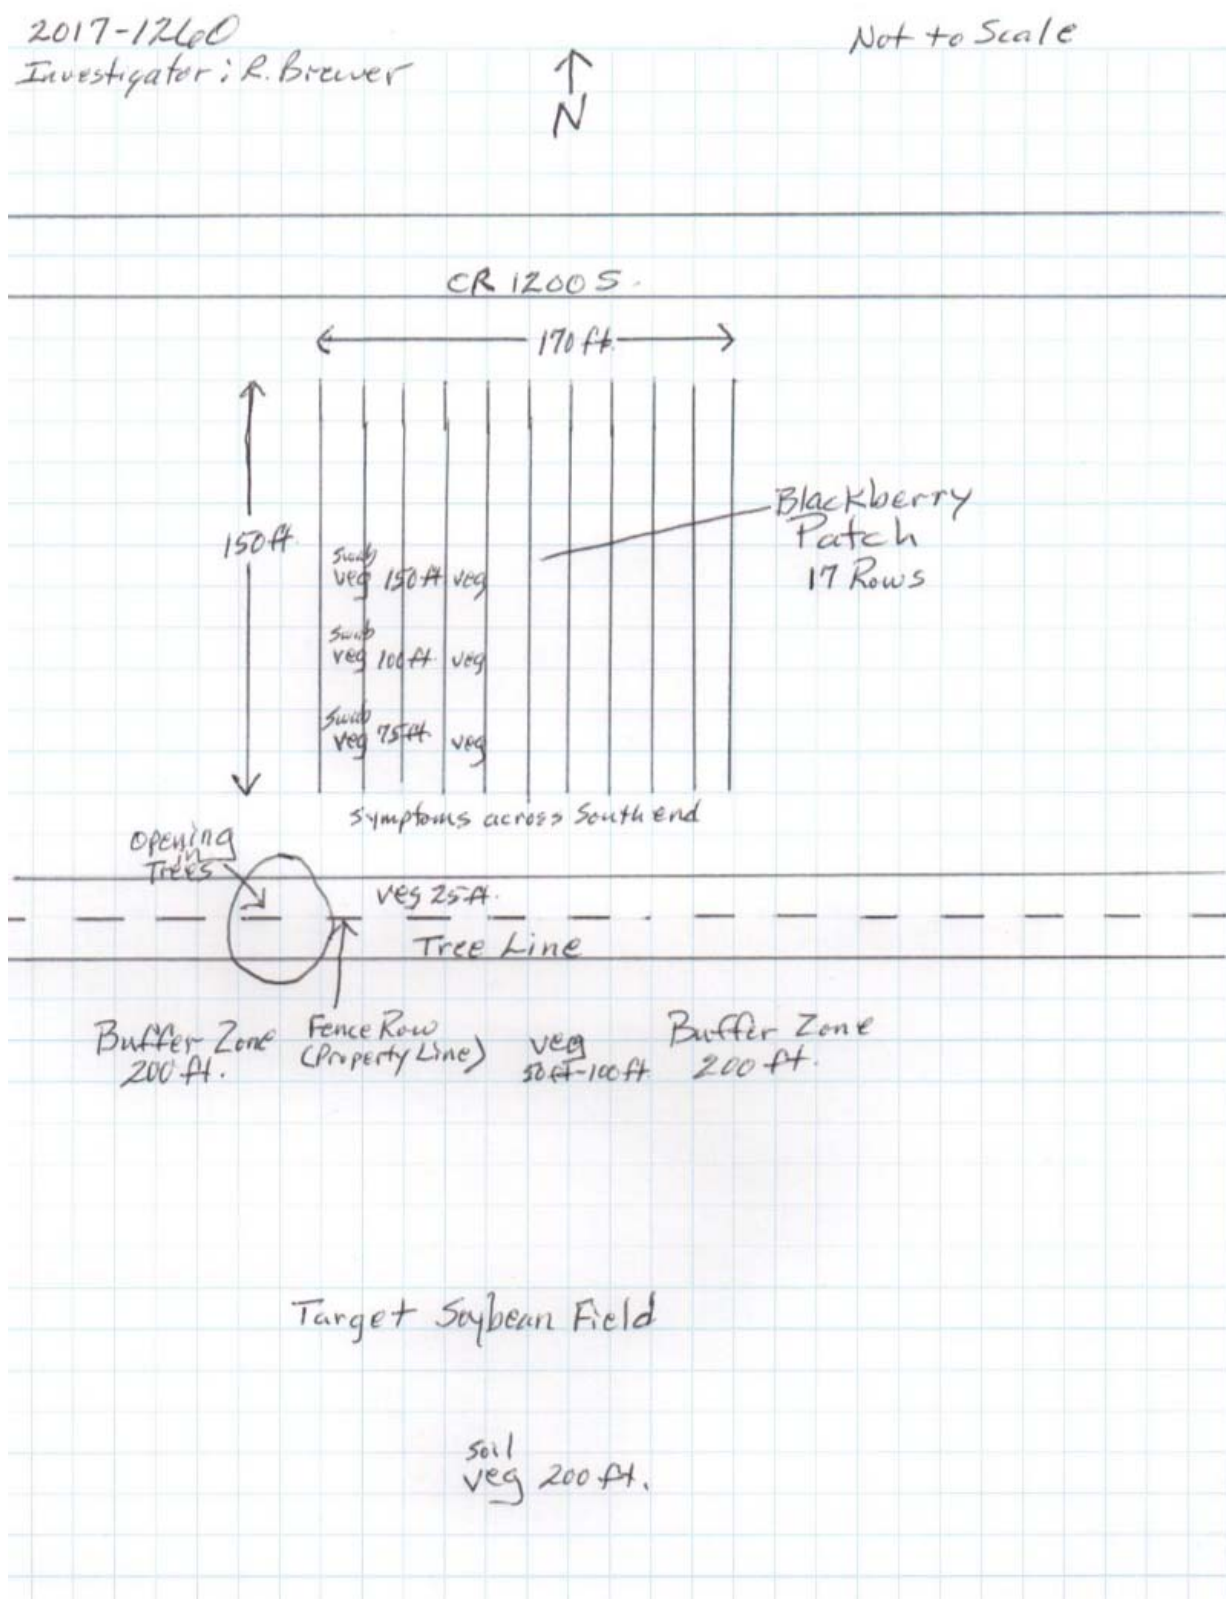 2017-1260
Not to Scale
Investigator: R. Brewer
N
CR 1200 S.
170 ft.
150 ft.
Blackberry
Patch
17 Rows
Swab
veg 150 ft veg
Swab
veg 100 ft. veg
Swab
veg 75 ft. veg
Symptoms across South end
Opening
in
Trees
veg 25 ft.
Tree Line
Buffer Zone
200 ft.
Fence Row
(Property Line)
veg
50 ft-100 ft.
Buffer Zone
200 ft.
Target Soybean Field
soil
veg 200 ft.